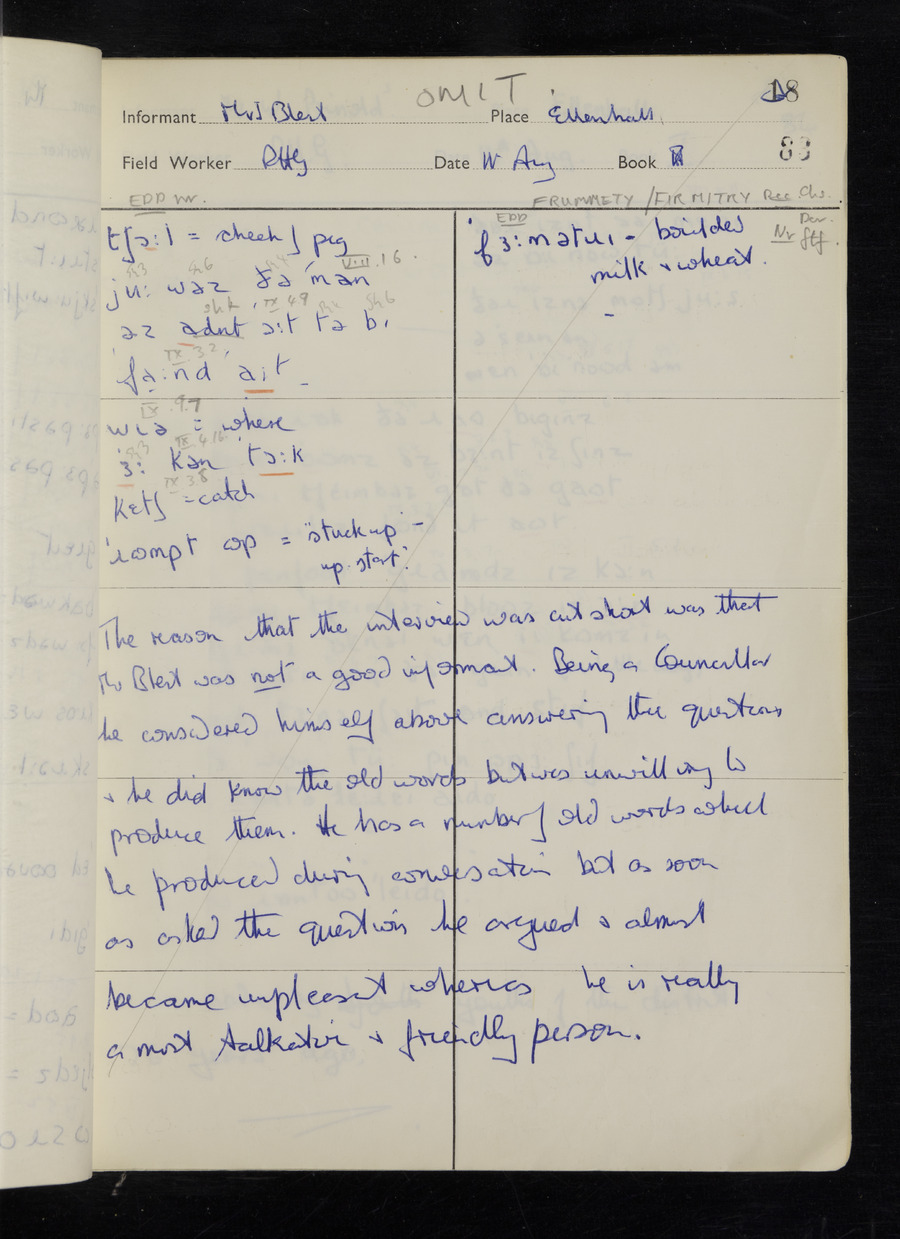 OMIT
18
Informant Mr J Blest Place Ellenhall
83
Field Worker RHG Date Aug Book
EDD
FRUMMETY / FIRMITRY
tʃɔːl = cheek of pig
VIII.16.
juː wəz ðə ˈmən
əz adnt aːt tə bɪ
ˈfəːnd aːt
IX.9.7
wɪə = where
ˈɜː kən ˈtɔːk
IX.3.8
ketʃ = catch
ɒp = "stuck-up" -
up-start.
EDD
ˈfɜːmətɹɪ - boiled
milk & wheat.
The reason that the interview was cut short was that
Mr Blest was not a good informant. Being a Councillor
he considered himself above answering the questions
& he did know the old words but was unwilling to
produce them. He has a number of old words which
he produced during conversation but as soon
as asked the question he argued & almost
became unpleasant whereas he is really
a most talkative & friendly person.